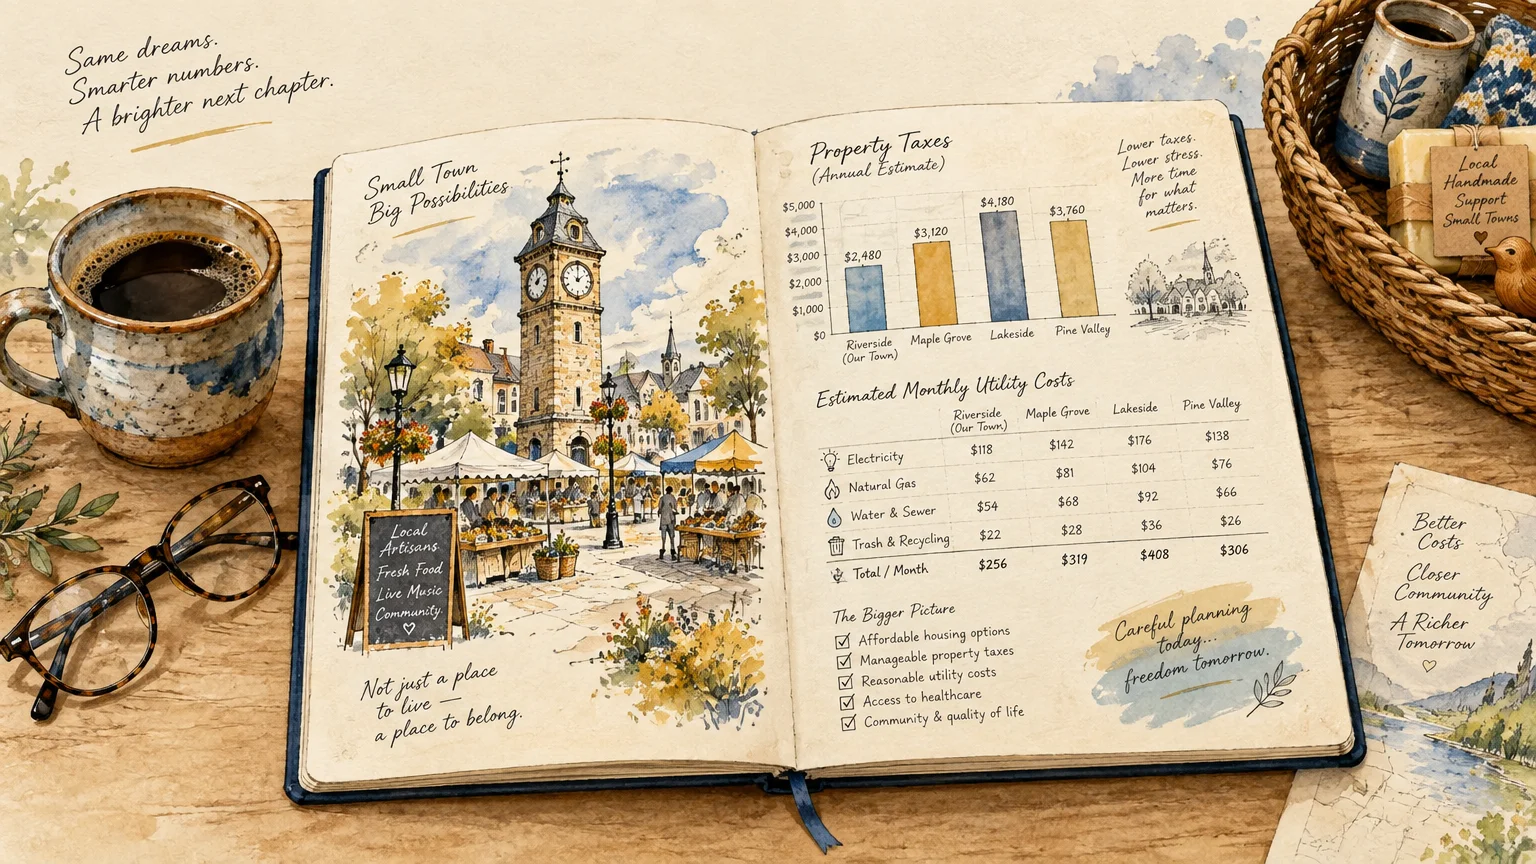 Same dreams.
Smarter numbers.
A brighter next chapter.
Small Town
Big Possibilities
Local
Artisans
Fresh Food
Live Music
Community
♡
Not just a place
to live —
a place to belong.
Property Taxes
(Annual Estimate)
Lower taxes.
Lower stress.
More time
for what
matters.
$5,000
$4,000
$3,000
$2,000
$1,000
$0
$2,480
$3,120
$4,180
$3,760
Riverside
(Our Town)
Maple Grove
Lakeside
Pine Valley
Estimated Monthly Utility Costs
Riverside
(Our Town)
Maple Grove
Lakeside
Pine Valley
Electricity $118 $142 $176 $138
Natural Gas $62 $81 $104 $76
Water & Sewer $54 $68 $92 $66
Trash & Recycling $22 $28 $36 $26
Total / Month $256 $319 $408 $306
The Bigger Picture
☑ Affordable housing options
☑ Manageable property taxes
☑ Reasonable utility costs
☑ Access to healthcare
☑ Community & quality of life
Careful planning
today...
freedom tomorrow.
Local
Handmade
Support
Small Towns
♥
Better
Costs
Closer
Community
A Richer
Tomorrow
♡